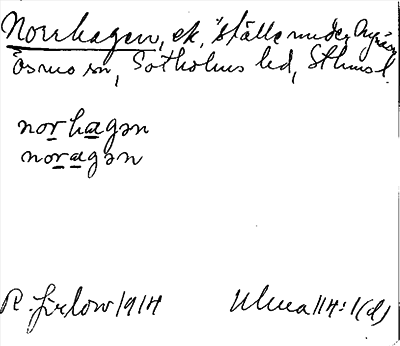 Norrhagen, ek, ställe under Ängnäs
Ösmo sn, Sotholms hd, Sthms l.
norhagən
noragən
R. Jirlow 1914
Ulma 114:1(d)